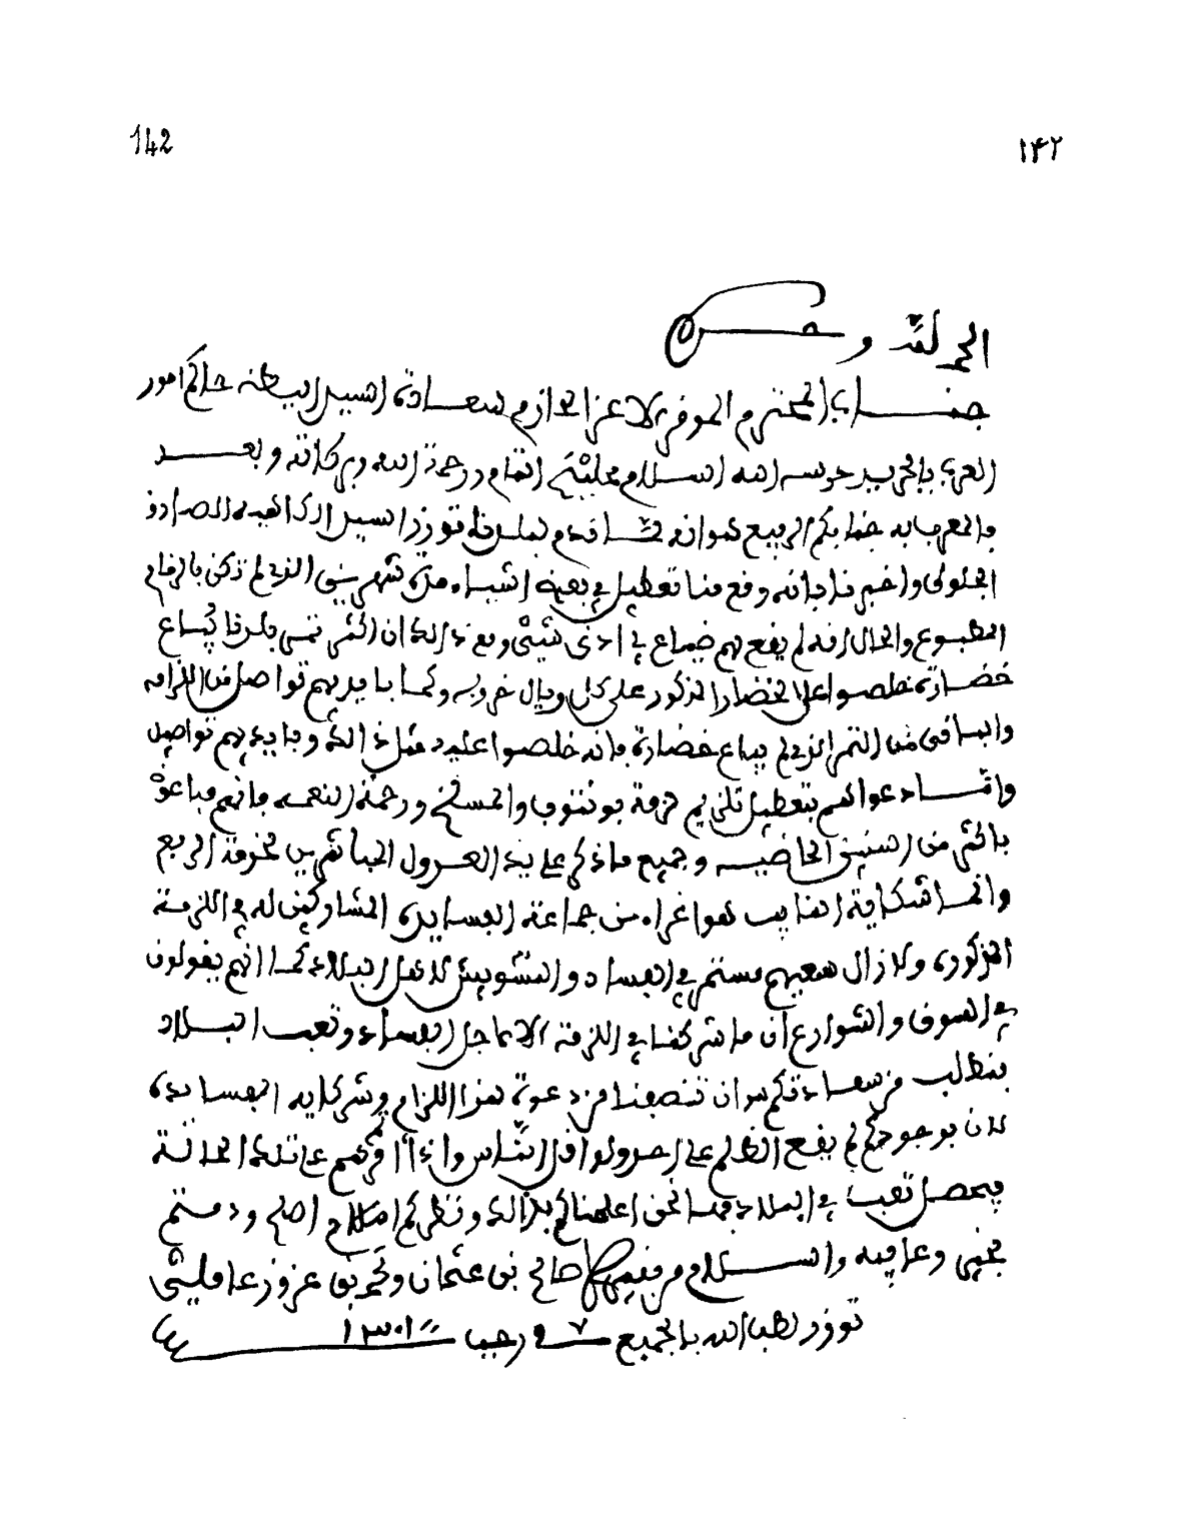 142
١٤٢
الحمد لله و
جناب المحترم الموقر الاعز الحازم سعادة السيد حاكم امور
العرب بالجريد حرسه الله السلام عليكم التام ورحمة الله وبركاته وبعد
فالمعرب به جنابكم الرفيع هو انه قدم لطرفنا توزر السيد الصادق
الجلولي واخبرنا بانه وقع منا تعطيل في بعض اشياء مدة شهرين الذي لم تكن بالرقام
المطبوع والحال انه لم يقع لهم ضياع في ادنى شيئ ومع ذالك ان التمر تمس بطرفنا يباع
خضارة خلصوا على الخضار المذكور على كل ريال خروبه وكما بايديهم تواصل من اللزامه
والباقي من التمر الذي لم يباع خضارة فانه خلصوا عليه مثل ذالك وبايديهم تواصل
وانما دعواهم بتعطيل تلزيم خرمة بونتوب والمسلخ ورحمة النعمه فانهم مباعو
باكثر من السنين الماضيه وجميع ما ذكر على يد العدول المباشرين لخرمة الربع
وانما شكاية النايب هو اغراء من جماعة الفسايدة المشاركين له في اللزمة
المذكورة ولا زال سعيهم مستمر في الفساد والتشويش لاهل البلاد كما انهم يقولون
في السوق والشوارع ان ما شركنا في اللزمة الا من اجل الفساد وتعب البلاد
فنطلب من سعادتكم ان تنصفنا من دعوة هذا اللزام وشركايه الفسايدة
لان بوجودكم لم يقع الظلم على احد ولو اقل الناس واذا اقرهم على تلك الحالة
يحصل تعب في البلاد فها نحن اعلمناكم بذالك ونظركم اصلاح اصلح ودمتم
بخير وعافيه والسلام من فقيرها صالح بن عثمان ومحمد بن عزوز عاملين
توزر لطف الله بالجميع في ٧ رجب ١٣٠١